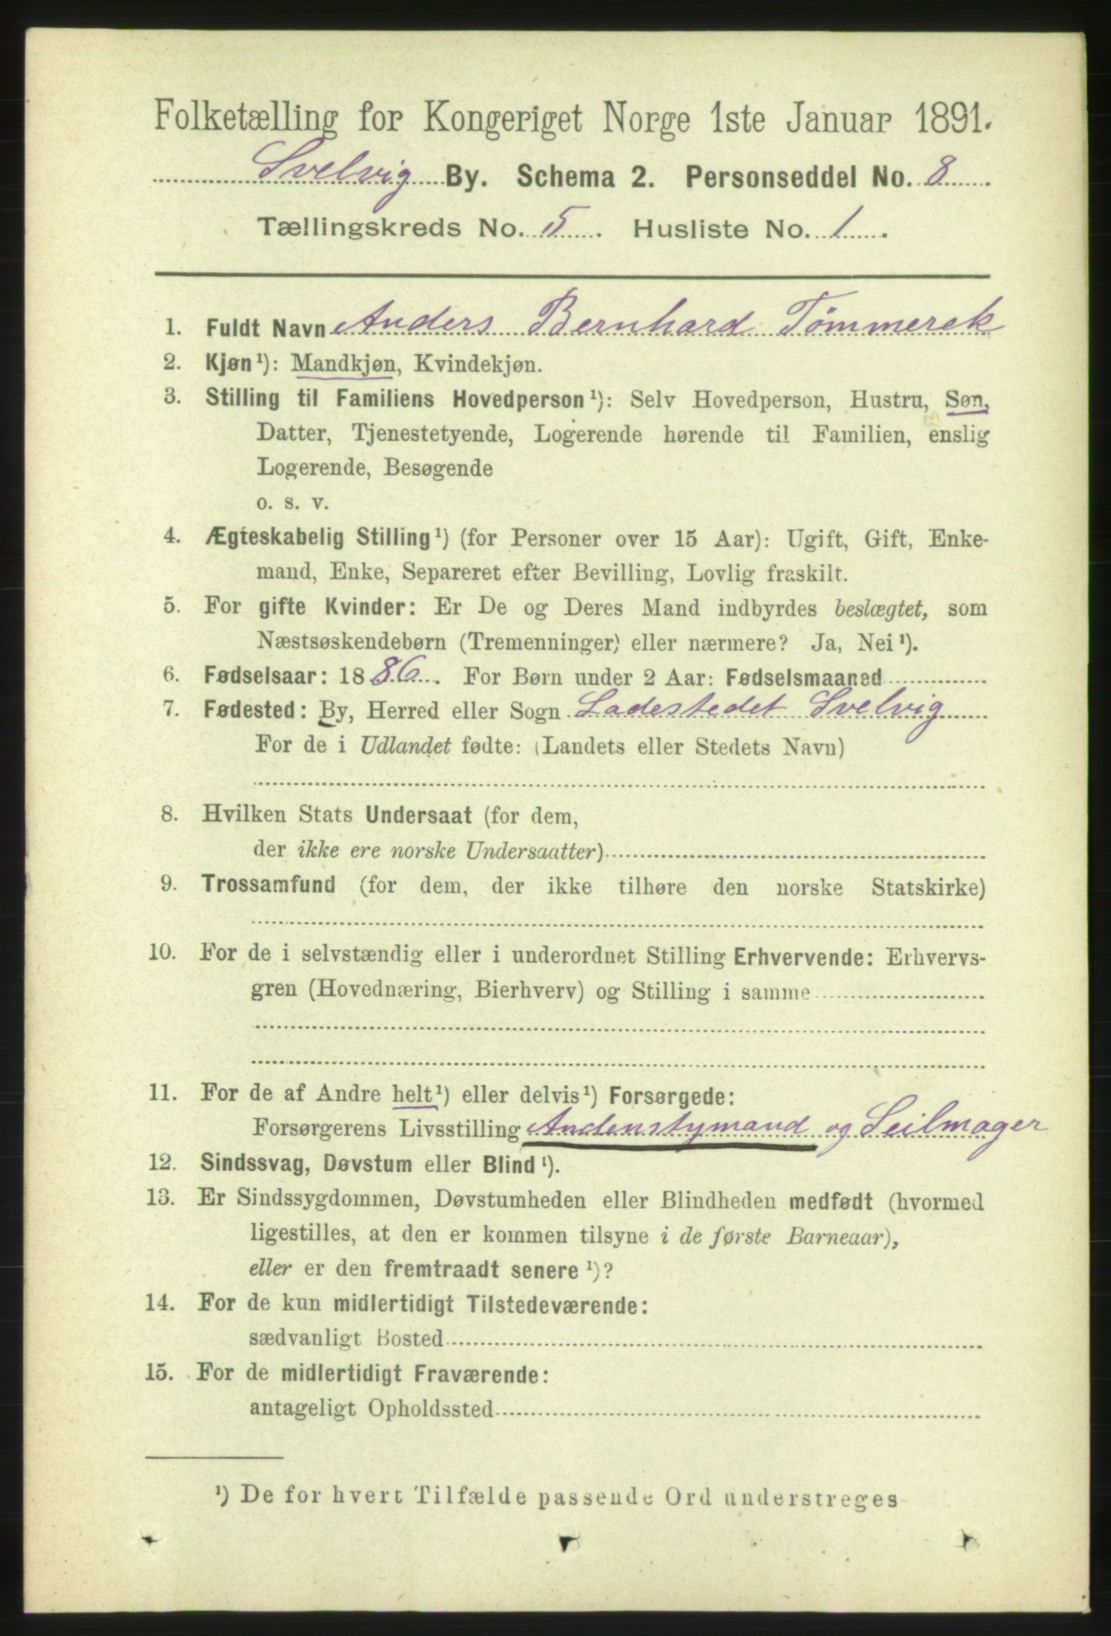 Folketælling for Kongeriget Norge 1ste Januar 1891.
Svelvig By. Schema 2. Personseddel No. 8
Tællingskreds No. 5. Husliste No. 1.
1. Fuldt Navn Anders Bernhard Tømmerek
2. Kjøn¹): Mandkjøn, Kvindekjøn.
3. Stilling til Familiens Hovedperson¹): Selv Hovedperson, Hustru, Søn,
Datter, Tjenestetyende, Logerende hørende til Familien, enslig
Logerende, Besøgende
o. s. v.
4. Ægteskabelig Stilling¹) (for Personer over 15 Aar): Ugift, Gift, Enke-
mand, Enke, Separeret efter Bevilling, Lovlig fraskilt.
5. For gifte Kvinder: Er De og Deres Mand indbyrdes beslægtet, som
Næstsøskendebørn (Tremenninger) eller nærmere? Ja, Nei¹).
6. Fødselsaar: 1886. For Børn under 2 Aar: Fødselsmaaned
7. Fødested: By, Herred eller Sogn Ladestedet Svelvig
For de i Udlandet fødte: (Landets eller Stedets Navn)
8. Hvilken Stats Undersaat (for dem,
der ikke ere norske Undersaatter)
9. Trossamfund (for dem, der ikke tilhøre den norske Statskirke)
10. For de i selvstændig eller i underordnet Stilling Erhvervende: Erhvervs-
gren (Hovednæring, Bierhverv) og Stilling i samme
11. For de af Andre helt¹) eller delvis¹) Forsørgede:
Forsørgerens Livsstilling Andenstymand og Seilmager
12. Sindssvag, Døvstum eller Blind¹).
13. Er Sindssygdommen, Døvstumheden eller Blindheden medfødt (hvormed
ligestilles, at den er kommen tilsyne i de første Barneaar),
eller er den fremtraadt senere¹)?
14. For de kun midlertidigt Tilstedeværende:
sædvanligt Bosted
15. For de midlertidigt Fraværende:
antageligt Opholdssted
¹) De for hvert Tilfælde passende Ord understreges